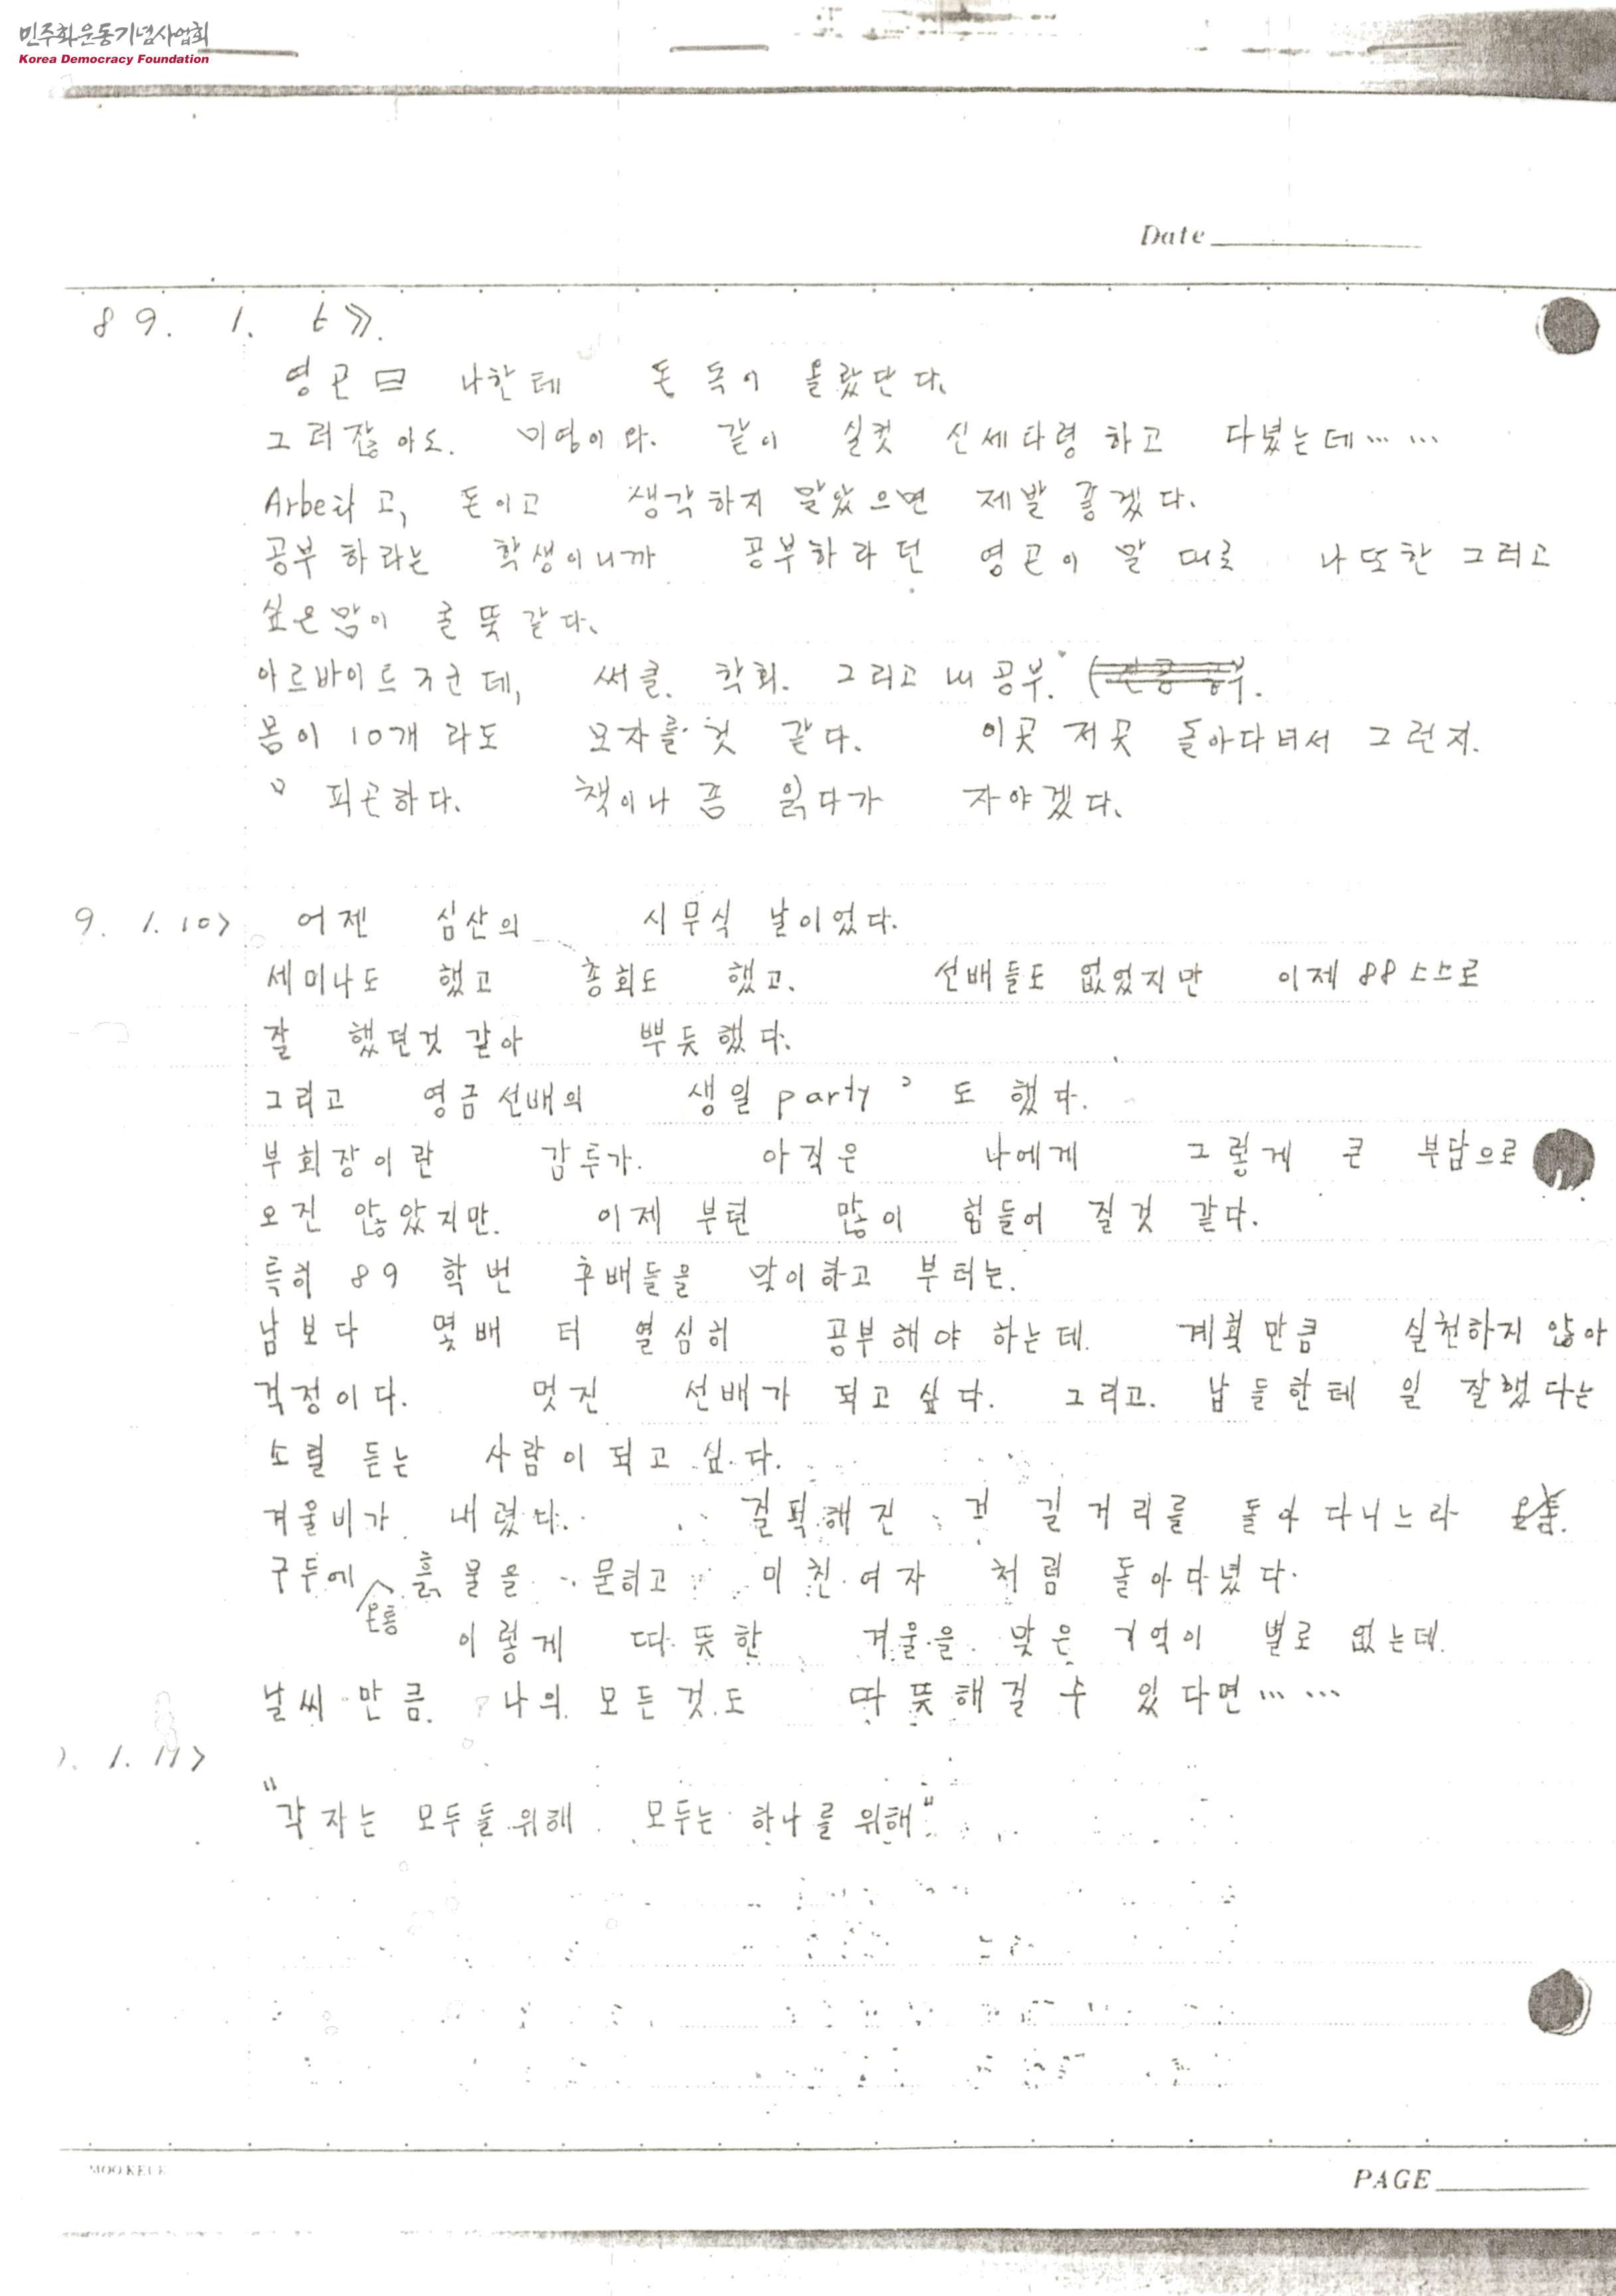 민주화운동기념사업회
Korea Democracy Foundation
Date
89. 1.
나한테 돈 독이 올랐단다.
그러잖아도. 미영이와. 같이 실컷 신세타령 하고 다녔는데……
돈이고 생각하지 말았으면 제발 좋겠다.
공부 하라는 학생이니까 공부하라던 영곤이 말 대로 나 또한 그러고
싶은 맘이 굴뚝 같다.
아르바이트 써클. 학회. 그리고 내 공부.
몸이 10개 라도 모자를 것 같다. 이곳 저곳 돌아다녀서 그런지.
피곤하다. 책이나 좀 읽다가 자야겠다.
9. 1. 10> 어젠 심산의 시무식 날이었다.
세미나도 했고 총회도 했고. 선배들도 없었지만 이제 88 스스로
잘 했던것 같아 뿌듯했다.
그리고 영금선배의 생일 party도 했다.
부회장이란 감투가. 아직은 나에게 그렇게 큰 부담으로
오진 않았지만. 이제 부턴 많이 힘들어 질것 같다.
특히 89 학번 후배들을 맞이하고 부터는.
남보다 몇배 더 열심히 공부해야 하는데. 계획만큼 실천하지 않아
걱정이다. 멋진 선배가 되고싶다. 그리고. 남들한테 일 잘했다는
소릴 듣는 사람이 되고 싶다.
겨울비가 내렸다. 질퍽해진 길거리를 돌아 다니느라
구두에 온통 흙물을 묻히고 미친 여자 처럼 돌아다녔다.
이렇게 따뜻한 겨울을 맞은 기억이 별로 없는데.
날씨 만큼. 나의 모든것도 따뜻해질 수 있다면……
1. 11>
"각자는 모두를 위해 모두는 하나를 위해"
MOOKEUK
PAGE